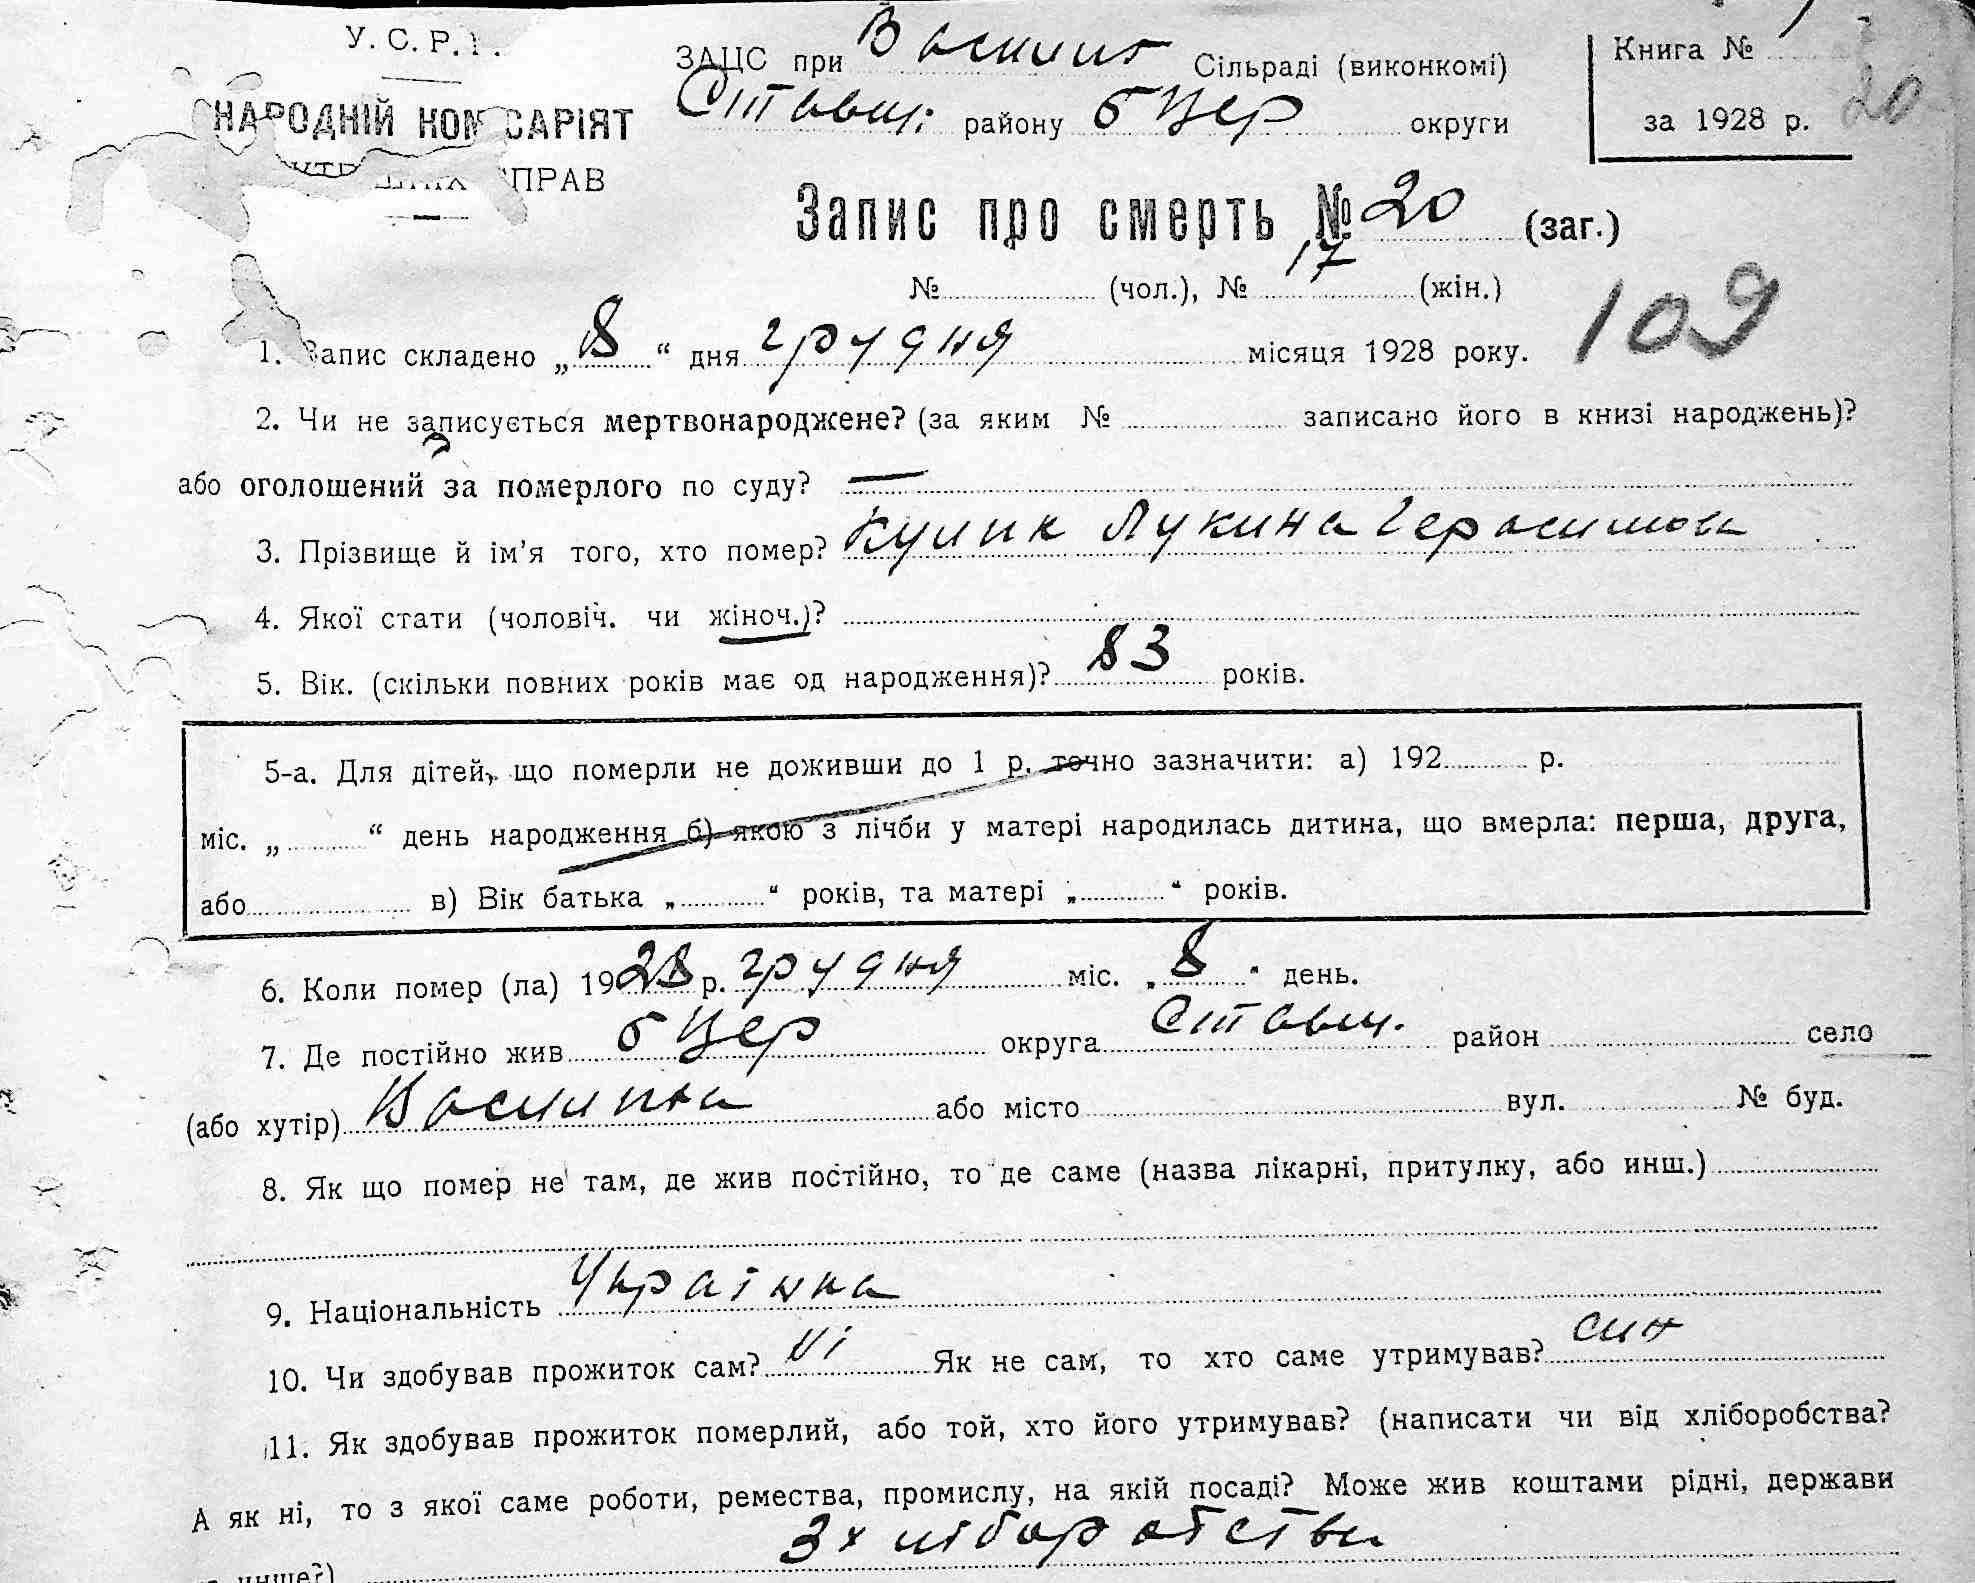 У. С. Р. Р.
НАРОДНІЙ КОМІСАРІЯТ
ВНУТРІШНІХ СПРАВ
ЗАЦС при Василип Сільраді (виконкомі)
Ставищ. району б Цер округи
Книга № 1
за 1928 р.
20
Запис про смерть № 20 (заг.)
№ (чол.), № 17 (жін.)
109
1. Запис складено „8“ дня грудня місяця 1928 року.
2. Чи не записується мертвонароджене? (за яким № записано його в книзі народжень)?
або оголошений за померлого по суду? —
3. Прізвище й ім’я того, хто помер? Кулик Лукина Герасимова
4. Якої стати (чоловіч. чи жіноч.)?
5. Вік. (скільки повних років має од народження)? 83 років.
5-а. Для дітей, що померли не доживши до 1 р. точно зазначити: а) 192 р.
міс. „ “ день народження б) якою з лічби у матері народилась дитина, що вмерла: перша, друга,
або в) Вік батька „ “ років, та матері „ “ років.
6. Коли помер (ла) 1928 р. грудня міс. „8“ день.
7. Де постійно жив б Цер округа Ставищ. район село
(або хутір) Василипка або місто вул. № буд.
8. Як що помер не там, де жив постійно, то де саме (назва лікарні, притулку, або инш.)
9. Національність Українка
10. Чи здобував прожиток сам? ні Як не сам, то хто саме утримував? син
11. Як здобував прожиток померлий, або той, хто його утримував? (написати чи від хліборобства?
А як ні, то з якої саме роботи, ремества, промислу, на якій посаді? Може жив коштами рідні, держави
инше?) З хліборобства